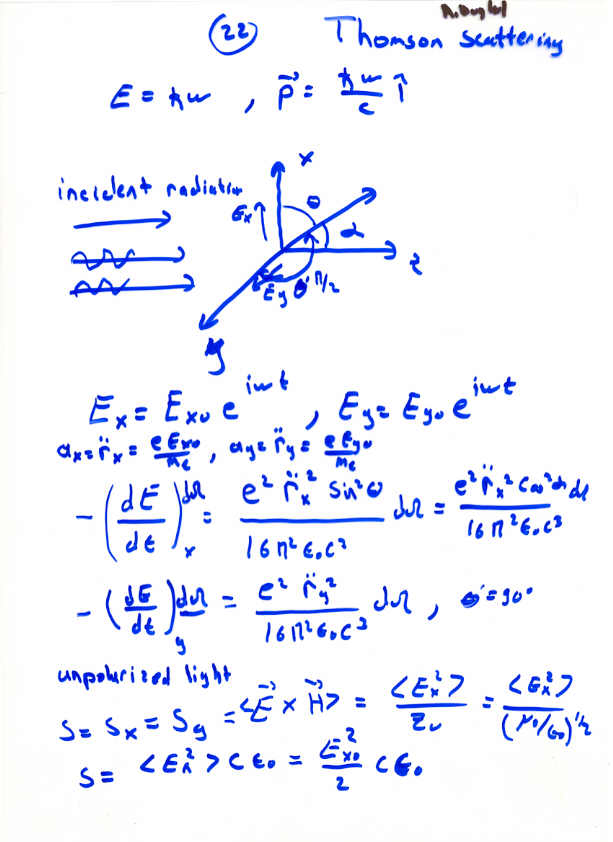 (22) Thomson scattering
E = ħw , p⃗ = ħw/c î
incident radiation
x
θ
Ex
α
z
Ey θ' π/2
y
Ex = Exo e^iwt , Ey = Eyo e^iwt
ax = r̈x = e Exo/me , ay = r̈y = e Eyo/me
- (dE/dt)x dΩ = e² r̈x² sin²θ / 16π²ε₀c³ dΩ = e² r̈x² cos²α dΩ / 16π²ε₀c³
- (dE/dt)y dΩ = e² r̈y² / 16π²ε₀c³ dΩ , θ' = 90°
unpolarized light
S = Sx = Sy = <E⃗ x H⃗> = <Ex²>/Zo = <Ex²>/(μ₀/ε₀)^1/2
S = <Ex²> c ε₀ = Exo²/2 c ε₀